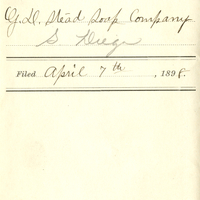 G. H. Stead Soap Company
S. Diego
Filed April 7th, 1898.